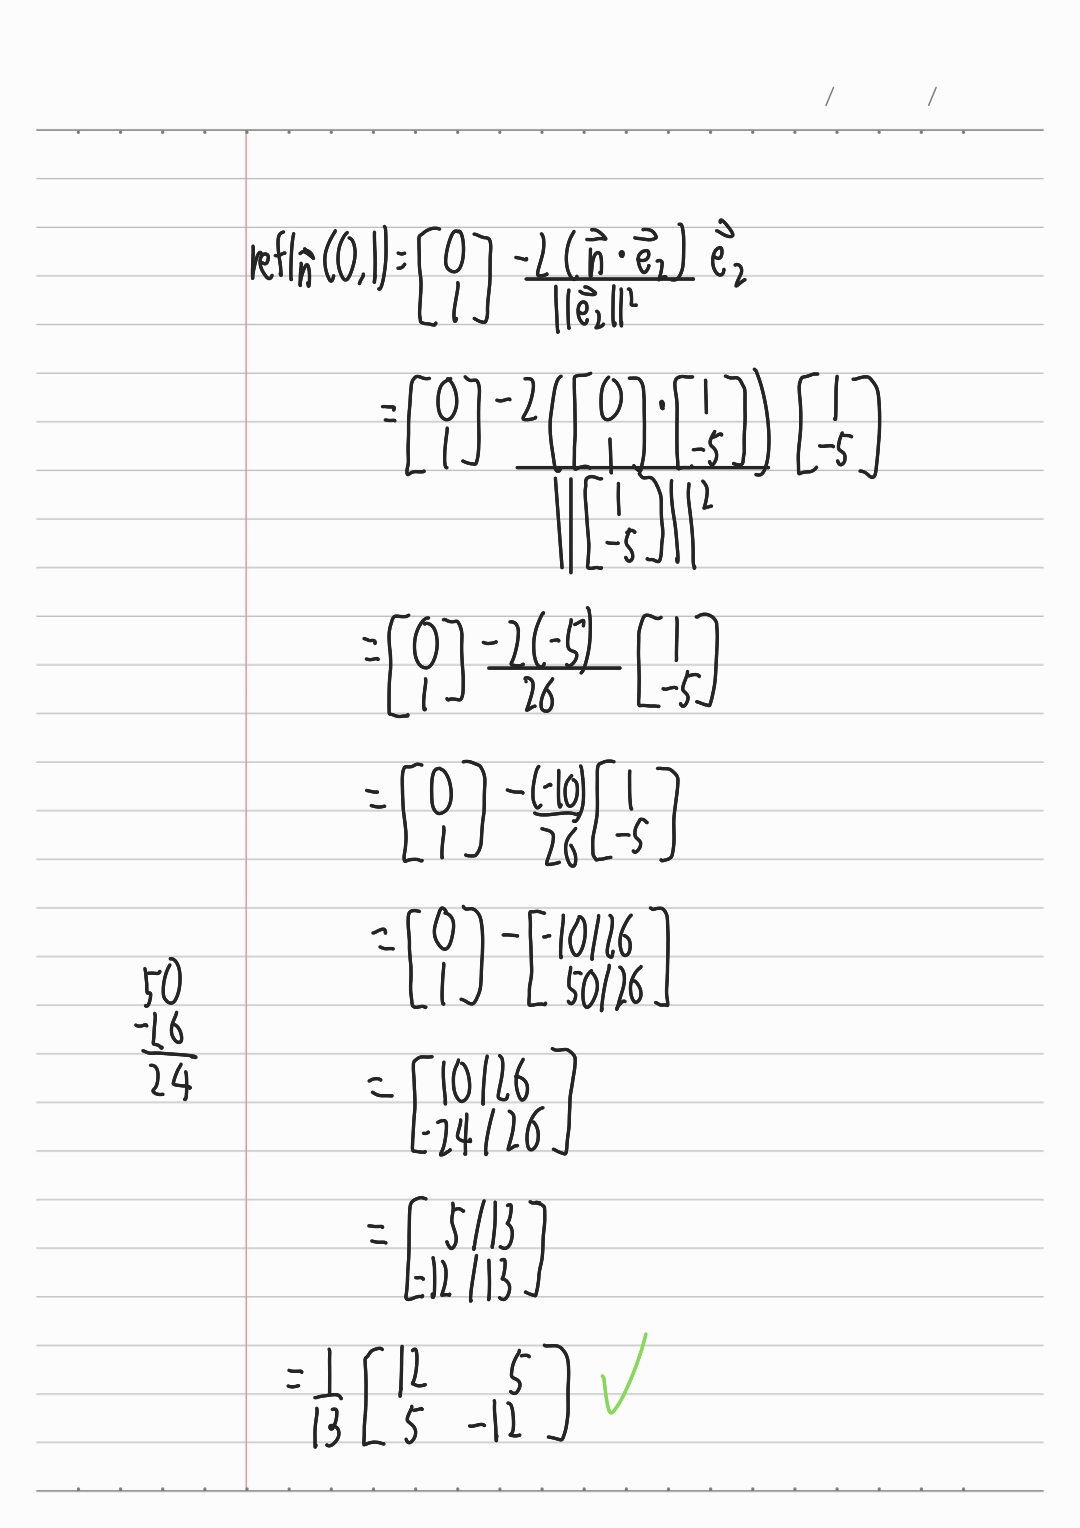 / /
refl_n⃗ (0,1) = [0; 1] - 2(n⃗ · e⃗₂)/||e⃗₂||² e⃗₂
= [0; 1] - 2([0; 1] · [1; -5])/||[1; -5]||² [1; -5]
= [0; 1] - 2(-5)/26 [1; -5]
= [0; 1] - (-10)/26 [1; -5]
= [0; 1] - [-10/26; 50/26]
50
-26
24
= [10/26; -24/26]
= [5/13; -12/13]
= 1/13 [12 5; 5 -12] ✓